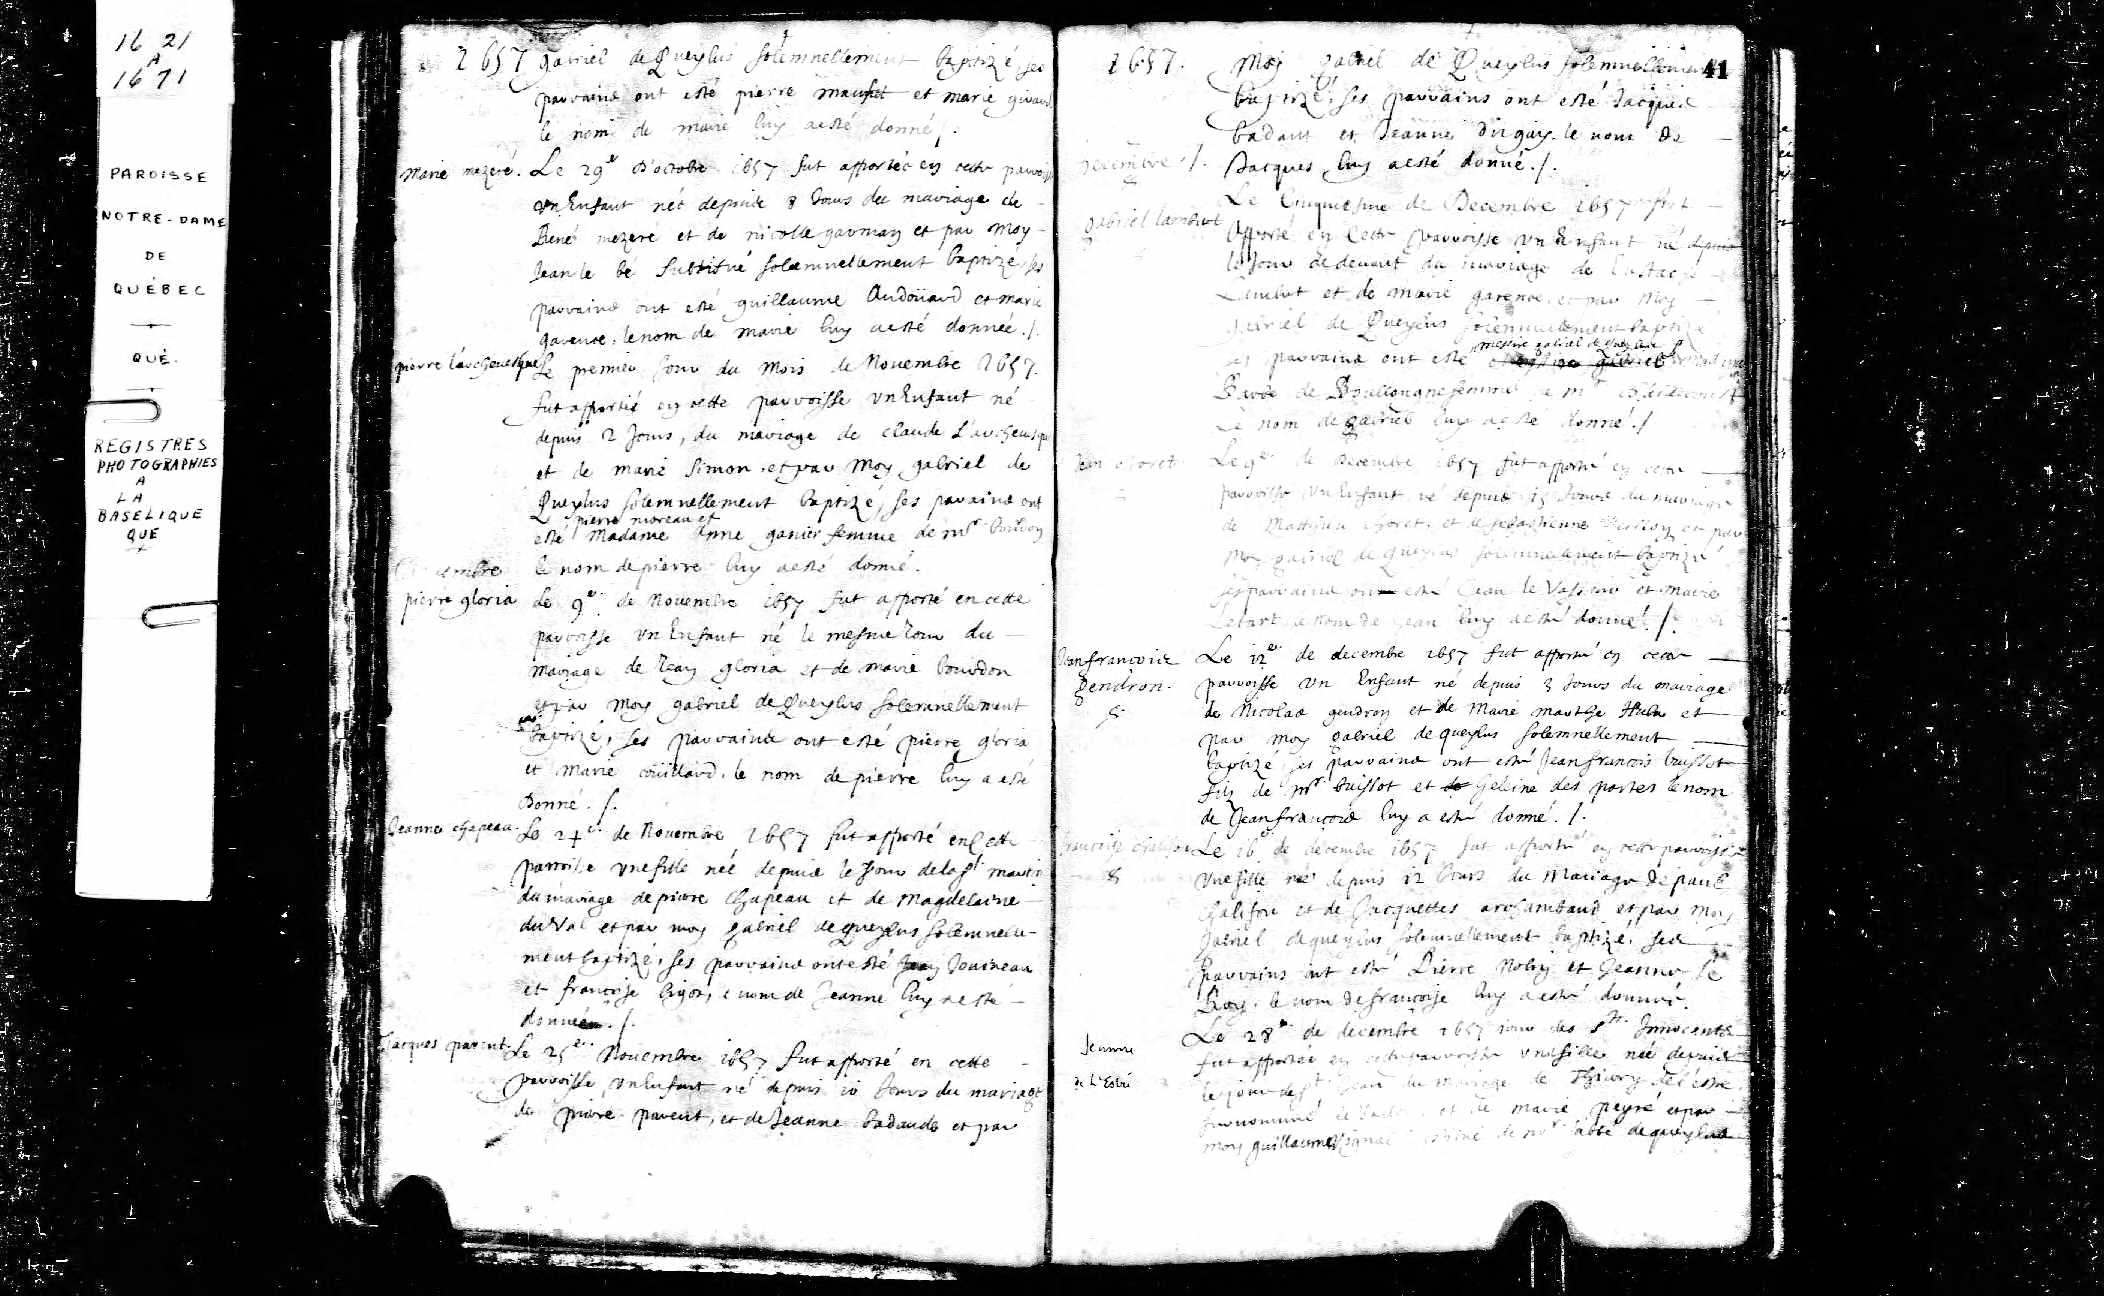 16 21
A
16 71
PAROISSE
NOTRE-DAME
DE
QUÉBEC
QUÉ.
REGISTRES
PHOTOGRAPHIES
A
LA
BASELIQUE
QUE
1657 gabriel de Queylus solemnellement baptizé ses
parrains ont esté pierre et marie
le nom de marie luy a esté donné /.
Marie mezeré. Le 29e d'octobre 1657 fut apportée en cette
un Enfant né depuis 8 Jours du mariage de
René mezeré et de nicolle garman et par Moy
Jean le bé substitué solemnellement baptizé, ses
parrains ont esté guillaume Audoüard et marie
garenne, le nom de marie luy a esté donnée /.
pierre l'archeuesque Le premier Jour du Mois de Nouembre 1657.
fut apporté en cette parroisse un Enfant né
depuis 2 Jours, du mariage de claude L'archeuesque
et de marie Simon, et par Moy gabriel de
Queylus solemnellement baptizé, ses parains ont
pierre moreau et
esté Madame Anne ganier femme de mr bourdon
le nom de pierre luy a esté donné.
pierre gloria Le 9e de Nouembre 1657 fut apporté en cette
parroisse un Enfant né le mesme Jour du
mariage de Jean gloria et de marie bourdon
et par moy gabriel de Queylus solemnellement
baptizé, ses parrains ont esté pierre gloria
et Marie coüillard. le nom de pierre luy a esté
Donné. /.
Jeanne chapeau. Le de Nouembre 1657 fut apporté en Cette
parroisse une fille née depuis le Jour de la st martin
du mariage de pierre Chapeau et de Magdelaine
du Val et par moy gabriel de queylus solemnelle-
ment baptizé, ses parrains ont esté Jouineau
et françoise bigot, le nom de Jeanne luy a esté
donnée. /.
Jacques parent. Le 25e Nouembre 1657 fut apporté en cette
parroisse un Enfant né depuis 10 Jours du mariage
de pierre parent, et de Jeanne badaude et par
1657. Moy gabriel de Queylus solemnellement 41
baptizé, ses parrains ont esté Jacques
badaut et Jeanne le nom de
Jacques luy a esté donné. /.
Decembre /.
gabriel lambert Le Cinquiesme de Decembre 1657 fut
Apporté en Cette parroisse un Enfant né depuis
le Jour de deuant du mariage de Eustache
Lambert et de Marie garenne et par Moy
gabriel de Queylus solemnellement baptizé
messire gabriel de queylus
ses parrains ont esté
Barbe de Boullongne femme de mr
Le nom de gabriel luy a esté donné. /
Jean choret Le 9e de Decembre 1657 fut apporté en cette
parroisse un Enfant né depuis 15 Jours du mariage
de Mathieu choret, et de sebastienne et par
Moy gabriel de queylus solemnellement baptizé
ses parrains ont esté Jean le Vasseur et marie
le nom de Jean luy a esté donné. /.
Jean françois
gendron. Le 12e de decembre 1657 fut apporté en cette
parroisse un Enfant né depuis 3 Jours du mariage
de Nicolas gendron et de Marie marthe et
par moy gabriel de queylus solemnellement
baptizé ses parrains ont esté Jean francois buissot
fils de mr buissot et Heleine des portes le nom
de Jean françois luy a esté donné. /.
françoise chalifou Le 16 de decembre 1657 fut apporté en cette parroisse
une fille née depuis 12 Jours du Mariage de paul
Chalifou et de Jacquettes archambaud et par Moy
gabriel de queylus solemnellement baptizé, ses
parrains ont esté Pierre et Jeanne le
Roy. le nom de françoise luy a esté donné.
Jeanne
de L'Estré
Le 28e de decembre 1657 jour des Sts Innocents
fut apportée en cette parroisse une fille née depuis
le jour de st Jean du mariage de Thierry de l'estre
surnommé le et de marie peyré et par
moy guillaume Vignal de mr l'abbé de queylus